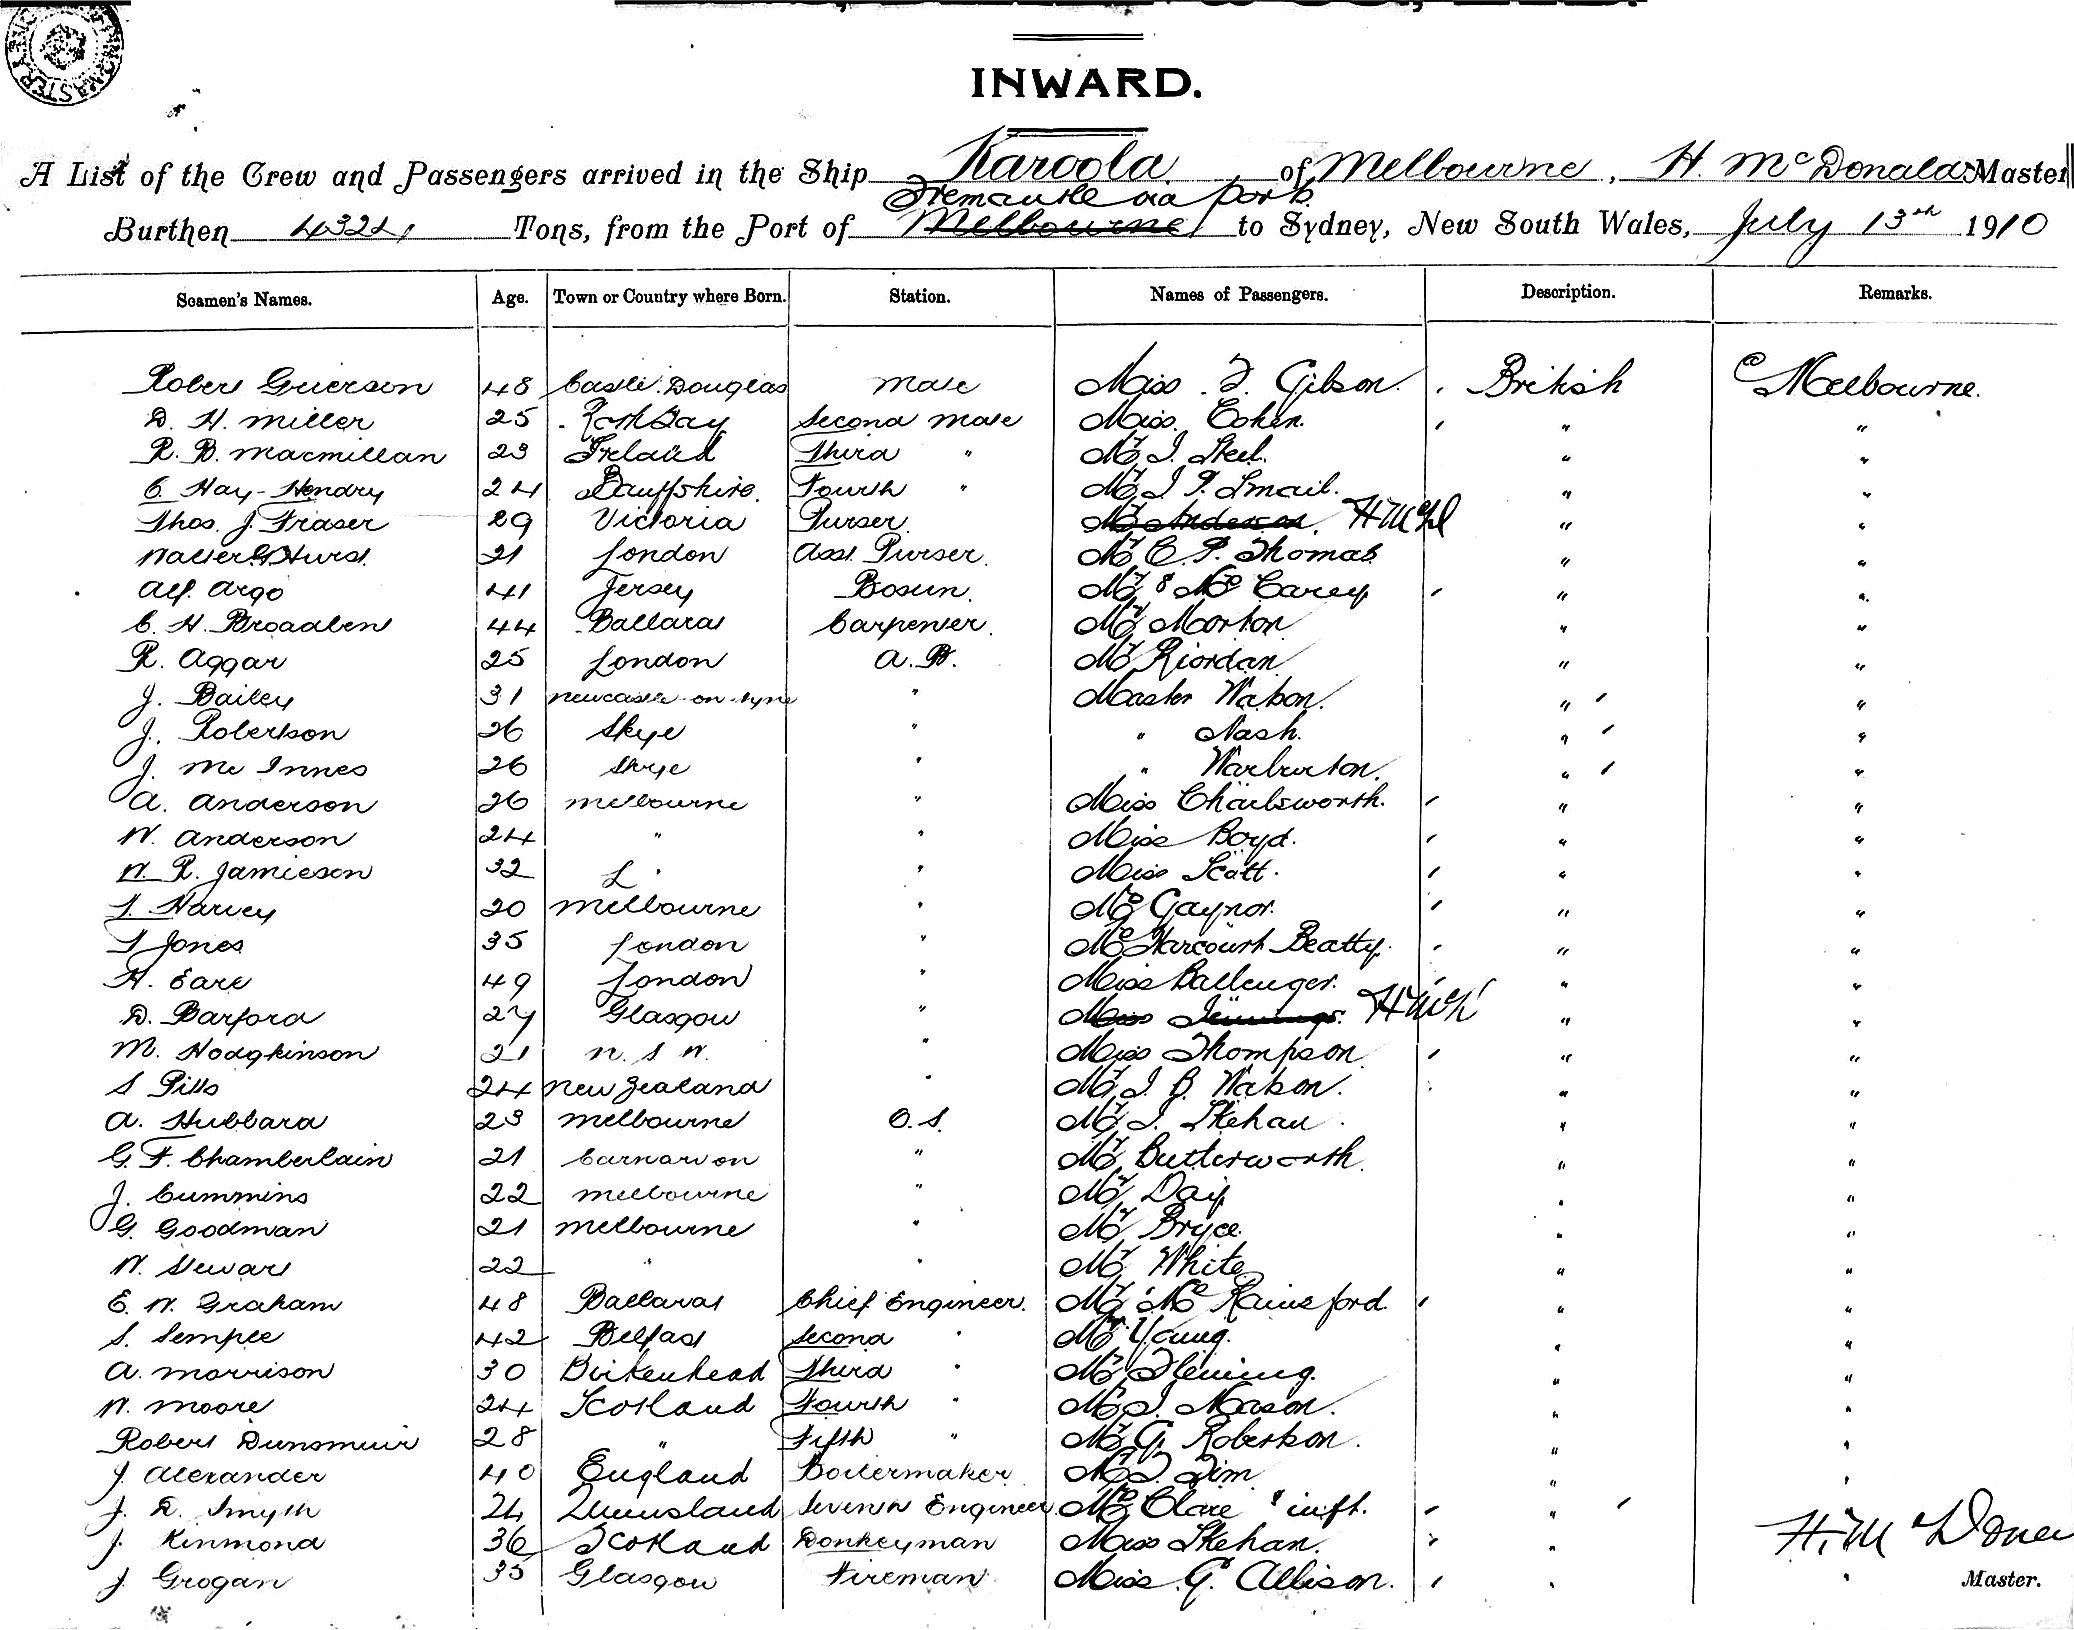 INWARD.
A List of the Crew and Passengers arrived in the Ship Karoola of Melbourne, H. McDonald Master
Fremantle via Ports
Burthen 4324 Tons, from the Port of Melbourne to Sydney, New South Wales, July 13th 1910
Seamen's Names. Age. Town or Country where Born. Station. Names of Passengers. Description. Remarks.
Robert Grierson 48 Castle Douglas Mate Miss F. Gibson. British Melbourne.
D. H. Miller 25 Second Mate Miss Cohen. " "
R. B. Macmillan 23 Ireland Third " Mr J. Steel. " "
C. Hay-Hendry 24 Banffshire. Fourth " Mr J. P. Smail. " "
Thos. J. Fraser 29 Victoria Purser Mr Anderson. " "
Walter G Hurst. 21 London Asst. Purser. Mr C. P. Thomas " "
Alf. Argo 41 Jersey Bosun. Mr & Mrs Carey " "
C. H. Broadben 44 Ballarat Carpenter. Mr Morton " "
R. Aggar 25 London A. B. Mr Riordan " "
J. Bailey 31 Newcastle-on-Tyne " Master Watson. " "
J. Robertson 26 Skye " " Nash. " "
J. McInnes 26 Skye " " Warburton. " "
A. Anderson 26 Melbourne " Miss Charlsworth. " "
W. Anderson 24 " " Miss Boyd. " "
W. R. Jamieson 32 L " " Miss Scott. " "
T. Harvey 20 Melbourne " Mrs Gaynor. " "
T Jones 35 London " Mrs Harcourt Beatty. " "
H. Earl 49 London " Miss Ballenger. " "
D. Barford 27 Glasgow " Miss Jennings. " "
M. Hodgkinson 21 N. S. W. " Miss Thompson " "
S Pitts 24 New Zealand " Mr J. B. Watson. " "
A. Hubbard 23 Melbourne O. S. Mr J. Skehan. " "
G. F. Chamberlain 21 Carnarvon " Mr Butterworth. " "
J. Cummins 22 Melbourne " Mr Day " "
G. Goodman 21 Melbourne " Mr Bryce. " "
W. Stewart 22 " " Mr White " "
E. W. Graham 48 Ballarat Chief Engineer. Mr Mrs Rainsford. " "
S. Semple 42 Belfast Second " Mr Young. " "
A. Morrison 30 Birkenhead Third " Mr Fleming. " "
W. Moore 24 Scotland Fourth " Mr J. Mason. " "
Robert Dunsmuir 28 " Fifth " Mr G. Robertson. " "
J. Alexander 40 England Boilermaker Mr J. Sim " "
J. D. Smyth 24 Queensland Seventh Engineer. Mrs Clare & inft. "
J. Kinmond 36 Scotland Donkeyman Miss Skehan. "
J. Grogan 35 Glasgow Fireman Miss G. Allison. " "
Master.